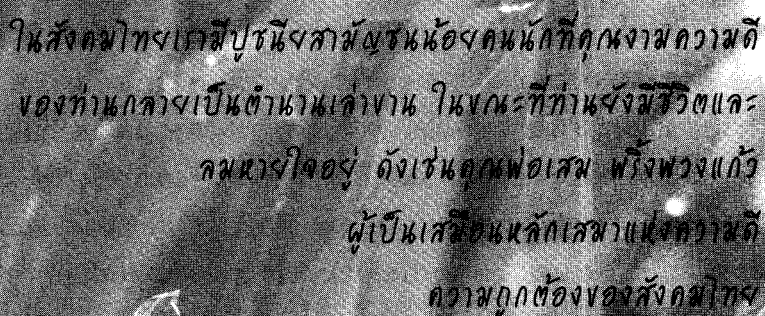 ในสังคมไทยเรามีปูชนียสามัญชนน้อยคนนักที่คุณงามความดี
ของท่านกลายเป็นตำนานเล่าขาน ในขณะที่ท่านยังมีชีวิตและ
ลมหายใจอยู่ ดังเช่นคุณพ่อเสม พริ้งพวงแก้ว
ผู้เป็นเสมือนหลักเสมาแห่งความดี
ความถูกต้องของสังคมไทย